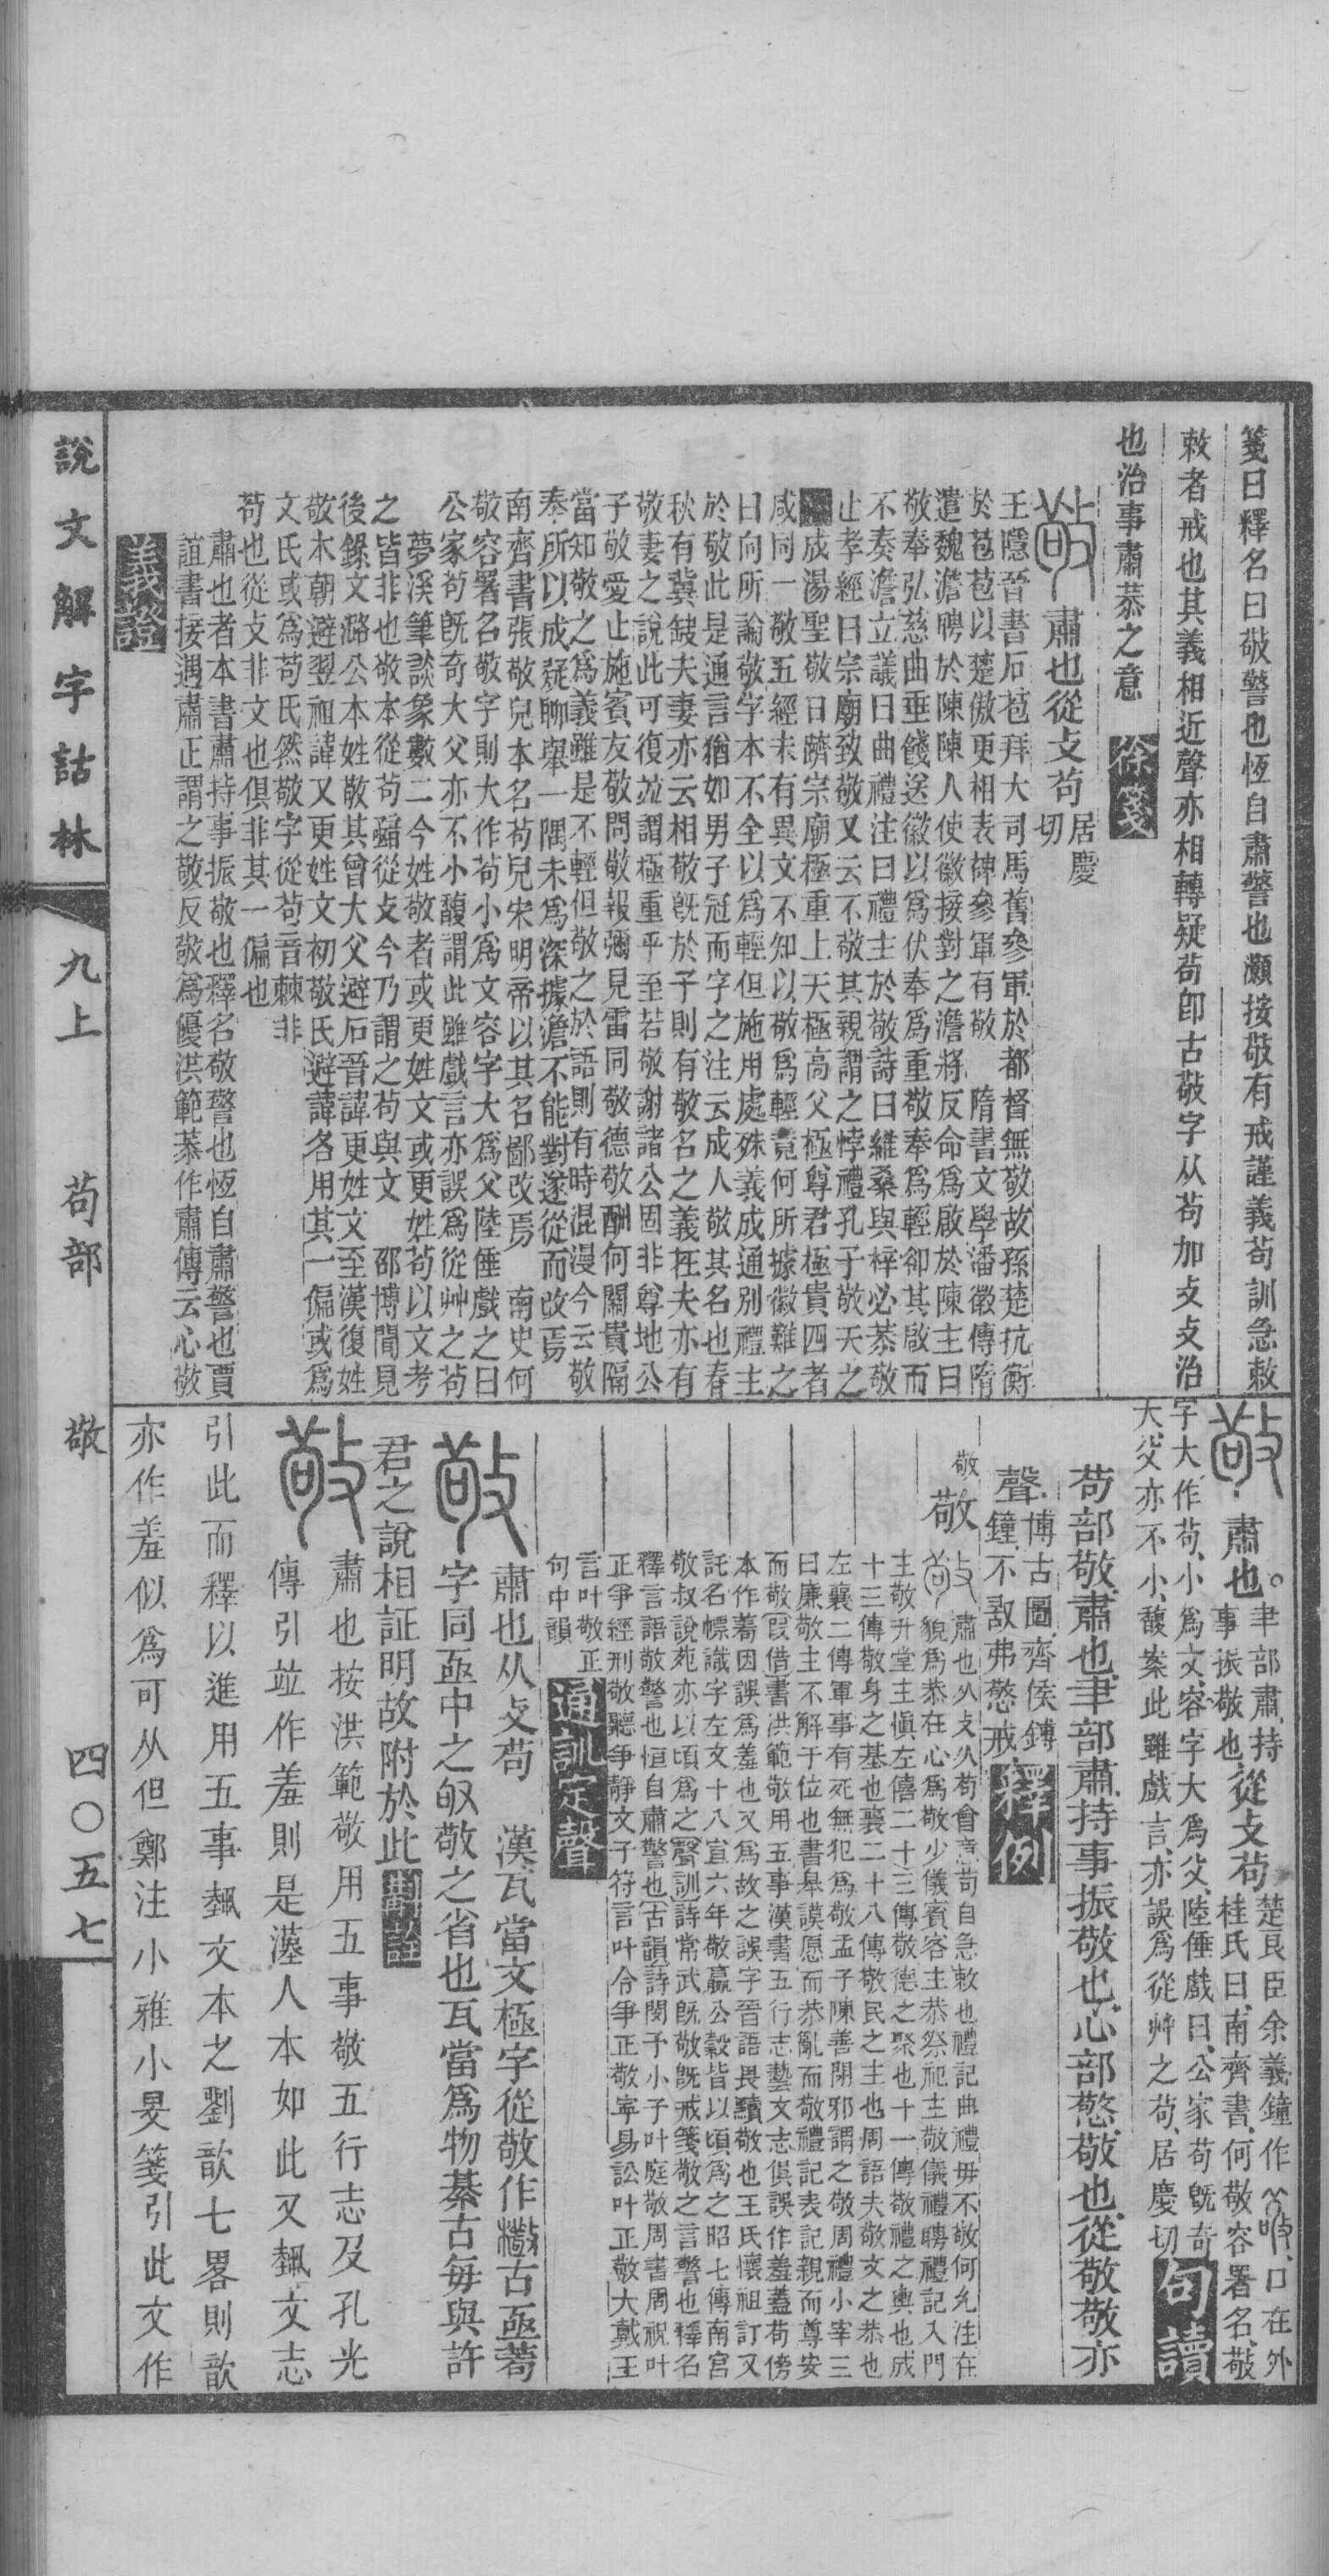 箋曰釋名曰敬警也恆自肅警也灝按敬有戒謹義茍訓急敕
敕者戒也其義相近聲亦相轉疑茍卽古敬字从茍加攴攴治
也治事肅恭之意 徐箋
肅也從攴茍 居慶切
王隱晉書石苞拜大司馬舊參軍於都督無敬故孫楚抗衡
於苞苞以楚傲更相表碑參軍有敬 隋書文學潘徽傳隋
遣魏澹聘於陳陳人使徽接對之澹將反命爲啟於陳主曰
敬奉弘慈曲垂餞送徽以爲伏奉爲重敬奉爲輕卻其啟而
不奏澹立議曰曲禮注曰禮主於敬詩曰維桑與梓必恭敬
止孝經曰宗廟致敬又云不敬其親謂之悖禮孔子敬天之
成湯聖敬日躋宗廟極重上天極高父極尊君極貴四者
咸同一敬五經未有異文不知以敬爲輕竟何所據徽難之
曰向所論敬字本不全以爲輕但施用處殊義成通別禮主
於敬此是通言猶如男子冠而字之注云成人敬其名也春
秋有冀缺夫妻亦云相敬旣於子則有敬名之義在夫亦有
敬妻之說此可復竝謂極重乎至若敬謝諸公固非尊地公
子敬愛止施賓友敬問敬報彌見雷同敬德敬酬何關貴隔
當知敬之爲義雖是不輕但敬之於語則有時混漫今云敬
奉所以成疑聊舉一隅未爲深據澹不能對遂從而改焉
南齊書張敬兒本名茍兒宋明帝以其名鄙改焉 南史何
敬容署名敬字則大作茍小爲文容字大爲父陸倕戲之曰
公家茍旣奇大父亦不小馥謂此雖戲言亦誤爲從艸之茍
夢溪筆談象數二今姓敬者或更姓文或更姓茍以文考
之皆非也敬本從茍從攴今乃謂之茍與文 邵博聞見
後錄文潞公本姓敬其曾大父避石晉諱更姓文至漢復姓
敬木朝避翌祖諱又更姓文初敬氏避諱各用其一偏或爲
文氏或爲茍氏然敬字從茍音棘非
茍也從攴非文也俱非其一偏也
肅也者本書肅持事振敬也釋名敬警也恆自肅警也賈
誼書接遇肅正謂之敬反敬爲嫚洪範恭作肅傳云心敬
義證
肅也。聿部肅持事振敬也從攴茍 楚良臣余義鐘作 口在外 桂氏曰南齊書何敬容署名敬
字大作茍、小爲文、容字大爲父、陸倕戲曰、公家茍旣奇
大、父亦不小、馥案此雖戲言、亦誤爲從艸之茍、居慶切 句讀
茍部敬肅也聿部肅持事振敬也心部憼敬也從敬敬亦
聲 博古圖齊侯鎛鐘不敢弗憼戒 釋例
敬 敬 肅也从攴从茍會意茍自急敕也禮記曲禮毋不敬何允注在
貌爲恭在心爲敬少儀賓客主恭祭祀主敬儀禮聘禮記入門
主敬升堂主慎左僖二十三傳敬德之聚也十一傳敬禮之輿也成
十三傳敬身之基也襄二十八傳敬民之主也周語夫敬文之恭也
左襄二傳軍事有死無犯爲敬孟子陳善閉邪謂之敬周禮小宰三
曰廉敬主不解于位也書皋謨愿而恭亂而敬禮記表記親而尊安
而敬〔叚借〕書洪範敬用五事漢書五行志藝文志俱誤作羞蓋茍傍
本作蓦因誤爲羞也又爲故之誤字晉語畏黷敬也王氏懷祖訂又
託名幖識字左文十八宣六年敬嬴公穀皆以頃爲之昭七傳南宮
敬叔說苑亦以頃爲之〔聲訓〕詩常武旣敬旣戒箋敬之言警也釋名
釋言語敬警也恒自肅警也〔古韻〕詩閔予小子叶庭敬周書周祝叶
正爭經刑敬聽爭靜文子符言叶令爭正敬寕易訟叶正敬大戴王
言叶敬正
句中韻 通訓定聲
肅也从攴茍 漢瓦當文極字從敬作 古亟蓦
字同亟中之 敬之省也瓦當爲物綦古每與許
君之說相証明故附於此 斠詮
肅也按洪範敬用五事敬五行志及孔光
傳引竝作羞則是漢人本如此又埶文志
引此而釋以進用五事埶文本之劉歆七畧則歆
亦作羞似爲可从但鄭注小雅小旻箋引此文作
說文解字詁林 九上 茍部 敬 四〇五七